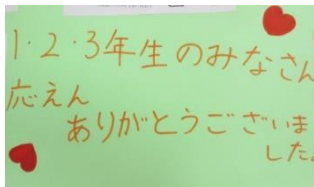 1・2・3年生のみなさん
応えん
ありがとうございま
した。